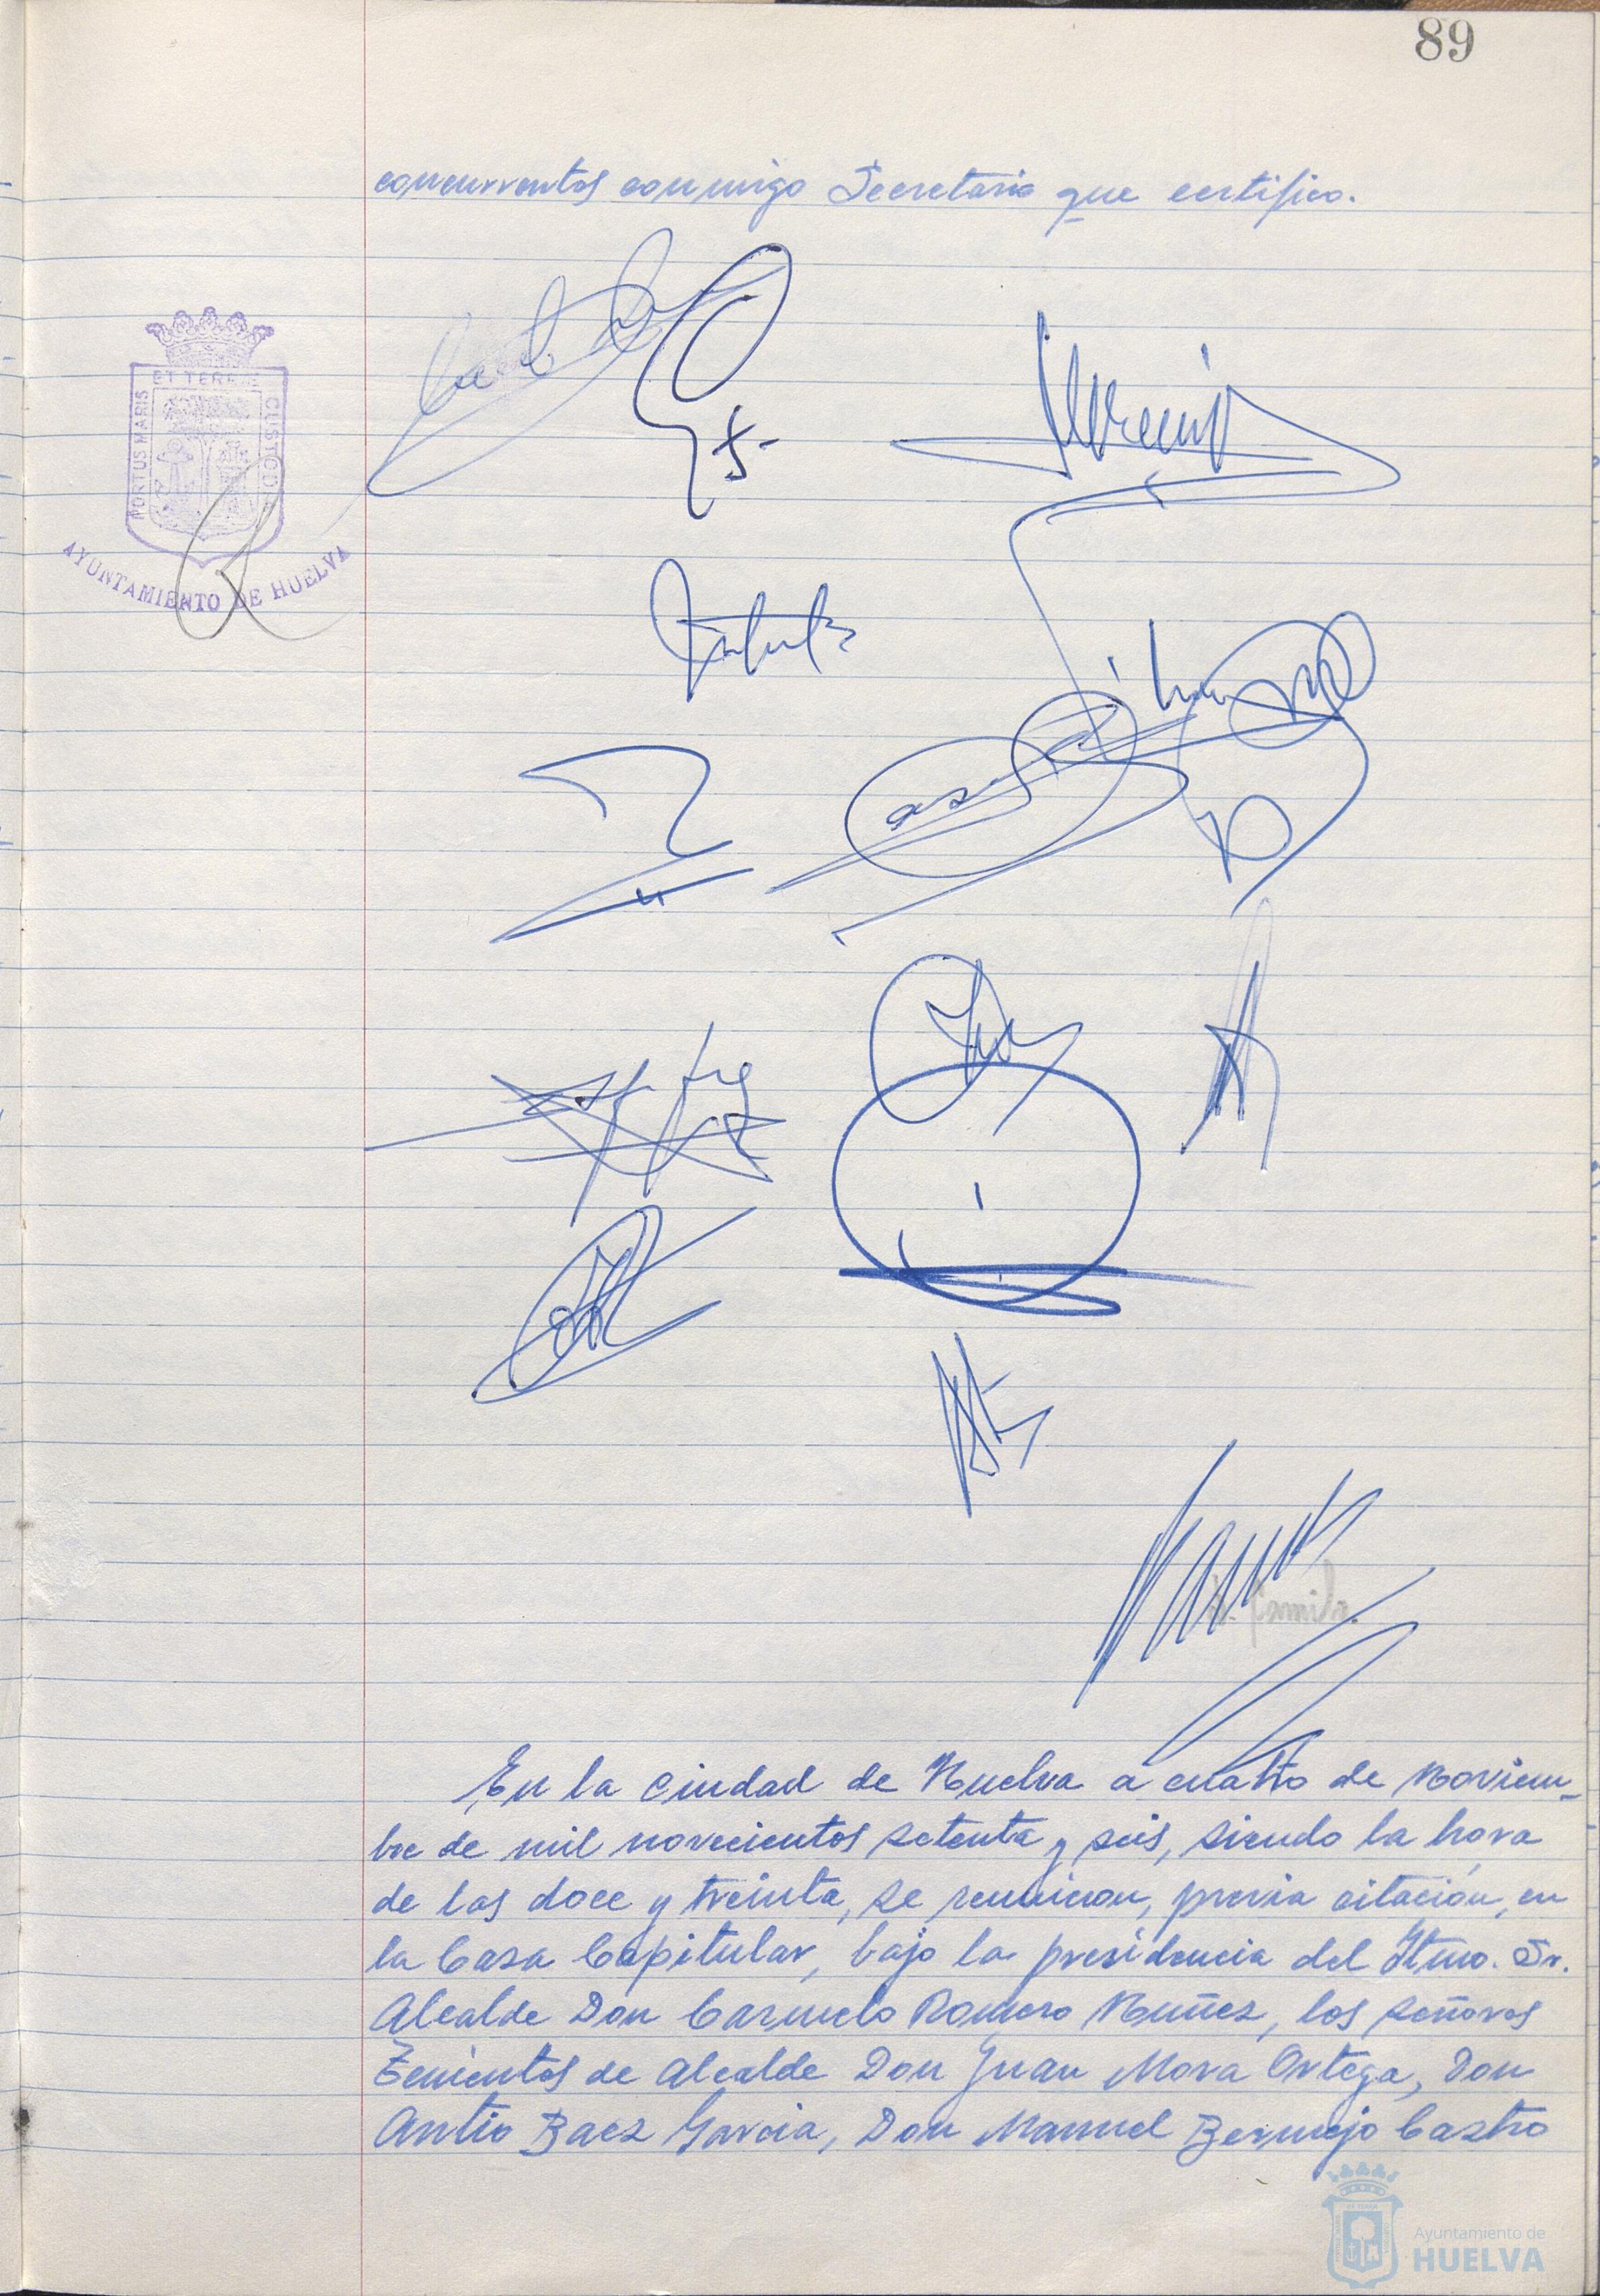 89
concurrentes conmigo Secretario que certifico.
PORTUS MARIS ET TERRAE CUSTODIA
AYUNTAMIENTO DE HUELVA
En la ciudad de Huelva a cuatro de Noviem-
bre de mil novecientos setenta y seis, siendo la hora
de las doce y treinta, se reunieron, previa citación, en
la Casa Capitular, bajo la presidencia del Iltmo. Sr.
Alcalde Don Carmelo Romero Nuñez, los señores
Tenientes de Alcalde Don Juan Mora Ortega, Don
Antio Baez Garcia, Don Manuel Bermejo Castro
Ayuntamiento de
HUELVA